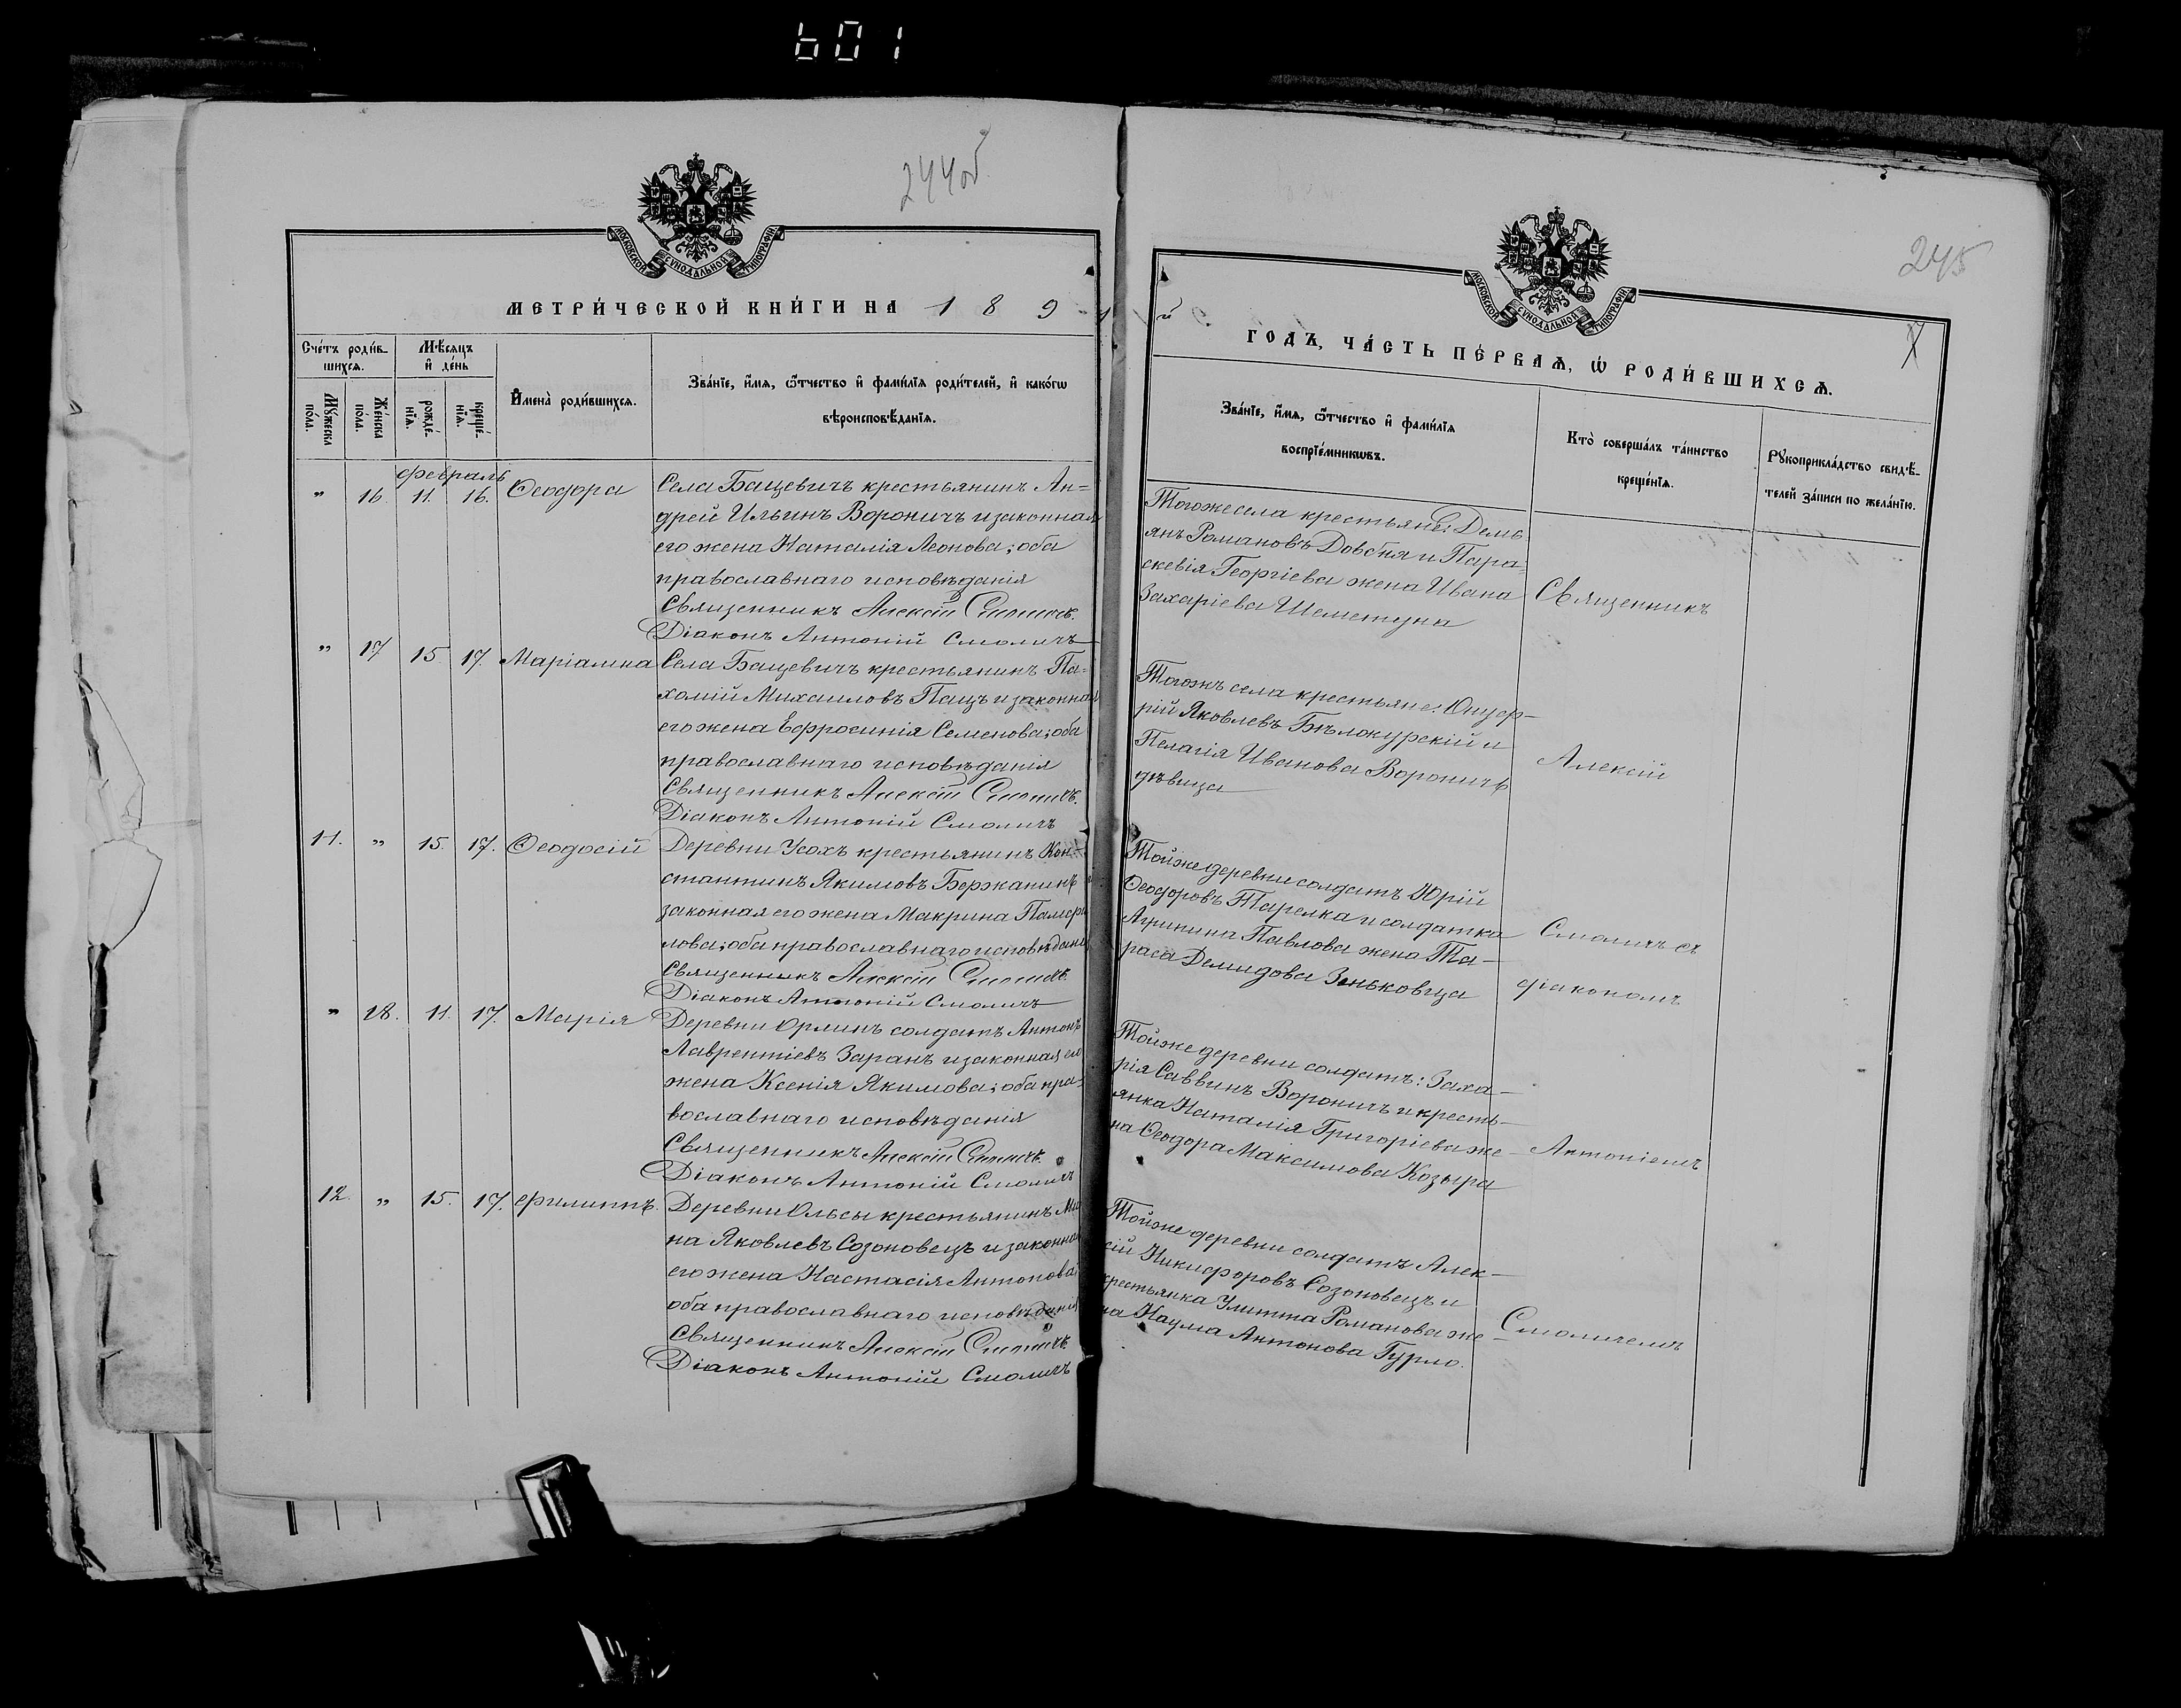 601
244об
МОСКОВСКОЙ СѴНОДАЛЬНОЙ ТИПОГРАФІИ
МЕТРИ́ЧЕСКОЙ КНИ́ГИ НА 1 8 9 1
Сче́тъ роди́в-
шихся.
Мѣ́сяцъ
и҆ де́нь
Мꙋ́жеска
по́ла.
Же́нска
по́ла.
рожде́-
нїѧ.
креще́-
нїѧ.
И҆мена̀ роди́вшихсѧ.
Зва́нїе, и҆́мѧ, ѻ҆́тчество и҆ фами́лїѧ роди́телей, и҆ како́гѡ
вѣроисповѣ́данїѧ.
Февраль
" 16. 11. 16. Ѳеодора
Села Бацевичъ крестьянинъ Ан=
дрей Ильинъ Вороничъ и законная
его жена Наталія Леонова; оба
православнаго исповѣданія
Священникъ Алексій Смоличъ.
Діаконъ Антоній Смоличъ
" 17 15. 17. Маріамна
Села Бацевичъ крестьянинъ Па=
хомій Михаиловъ Пацъ и законная
его жена Ефросинія Семенова; оба
православнаго исповѣданія
Священникъ Алексій Смоличъ.
Діаконъ Антоній Смоличъ
11. " 15. 17. Ѳеодосій
Деревни Усохъ крестьянинъ Кон-
стантинъ Якимовъ Бержанинъ
законная его жена Макрина Памфи
лова; оба православнаго исповѣдані
Священникъ Алексій Смоличъ.
Діаконъ Антоній Смоличъ
" 18. 11. 17. Марія
Деревни Орлинъ солдатъ Антонъ
Лаврентіевъ Заранъ и законная его
жена Ксенія Якимова; оба пра=
вославнаго исповѣданія
Священникъ Алексій Смоличъ.
Діаконъ Антоній Смоличъ
12. " 15. 17. Филиппъ.
Деревни Ольсы крестьянинъ Ми
на Яковлевъ Созоновецъ и законная
его жена Настасія Антонова;
оба православнаго исповѣданія
Священникъ Алексій Смоличъ
Діаконъ Антоній Смоличъ
245
МОСКОВСКОЙ СѴНОДАЛЬНОЙ ТИПОГРАФІИ
й
ГОДЪ, ЧА́СТЬ ПЕ́РВАѦ, Ѡ҆ РОДИ́ВШИХСѦ.
Зва́нїе, и҆́мѧ, ѻ҆́тчество и҆ фами́лїѧ
воспрїе́мникѡвъ.
Кто̀ соверша́лъ та́инство
креще́нїѧ.
Рꙋкоприкла́дство свидѣ́-
телей за́писи по жела́нїю.
Тогоже села крестьяне: Демь
янъ Романовъ Довбня и Пара=
скевія Георгіева жена Ивана
Захаріева Шеметуна
Священникъ
Тогожъ села крестьяне: Онуф-
рій Яковлевъ Бѣлокурскій и
Пелагія Иванова Вороничъ
дѣвица
Алексій
Тойже деревни солдатъ Юрій
Ѳеодоровъ Тарелка и солдатка
Агрипина Павлова жена Та-
раса Демидова Зеньковца
Смоличъ съ
діакономъ
Тойже деревни солдатъ: Заха-
рія Саввинъ Вороничъ и кресть-
янка Наталія Григоріева же-
на Ѳеодора Максимова Козыра
Антоніемъ
Тойже деревни солдатъ Алек-
сій Никифоровъ Созоновецъ и
крестьянка Улитта Романова же-
на Наума Антонова Гурло.
Смоличемъ